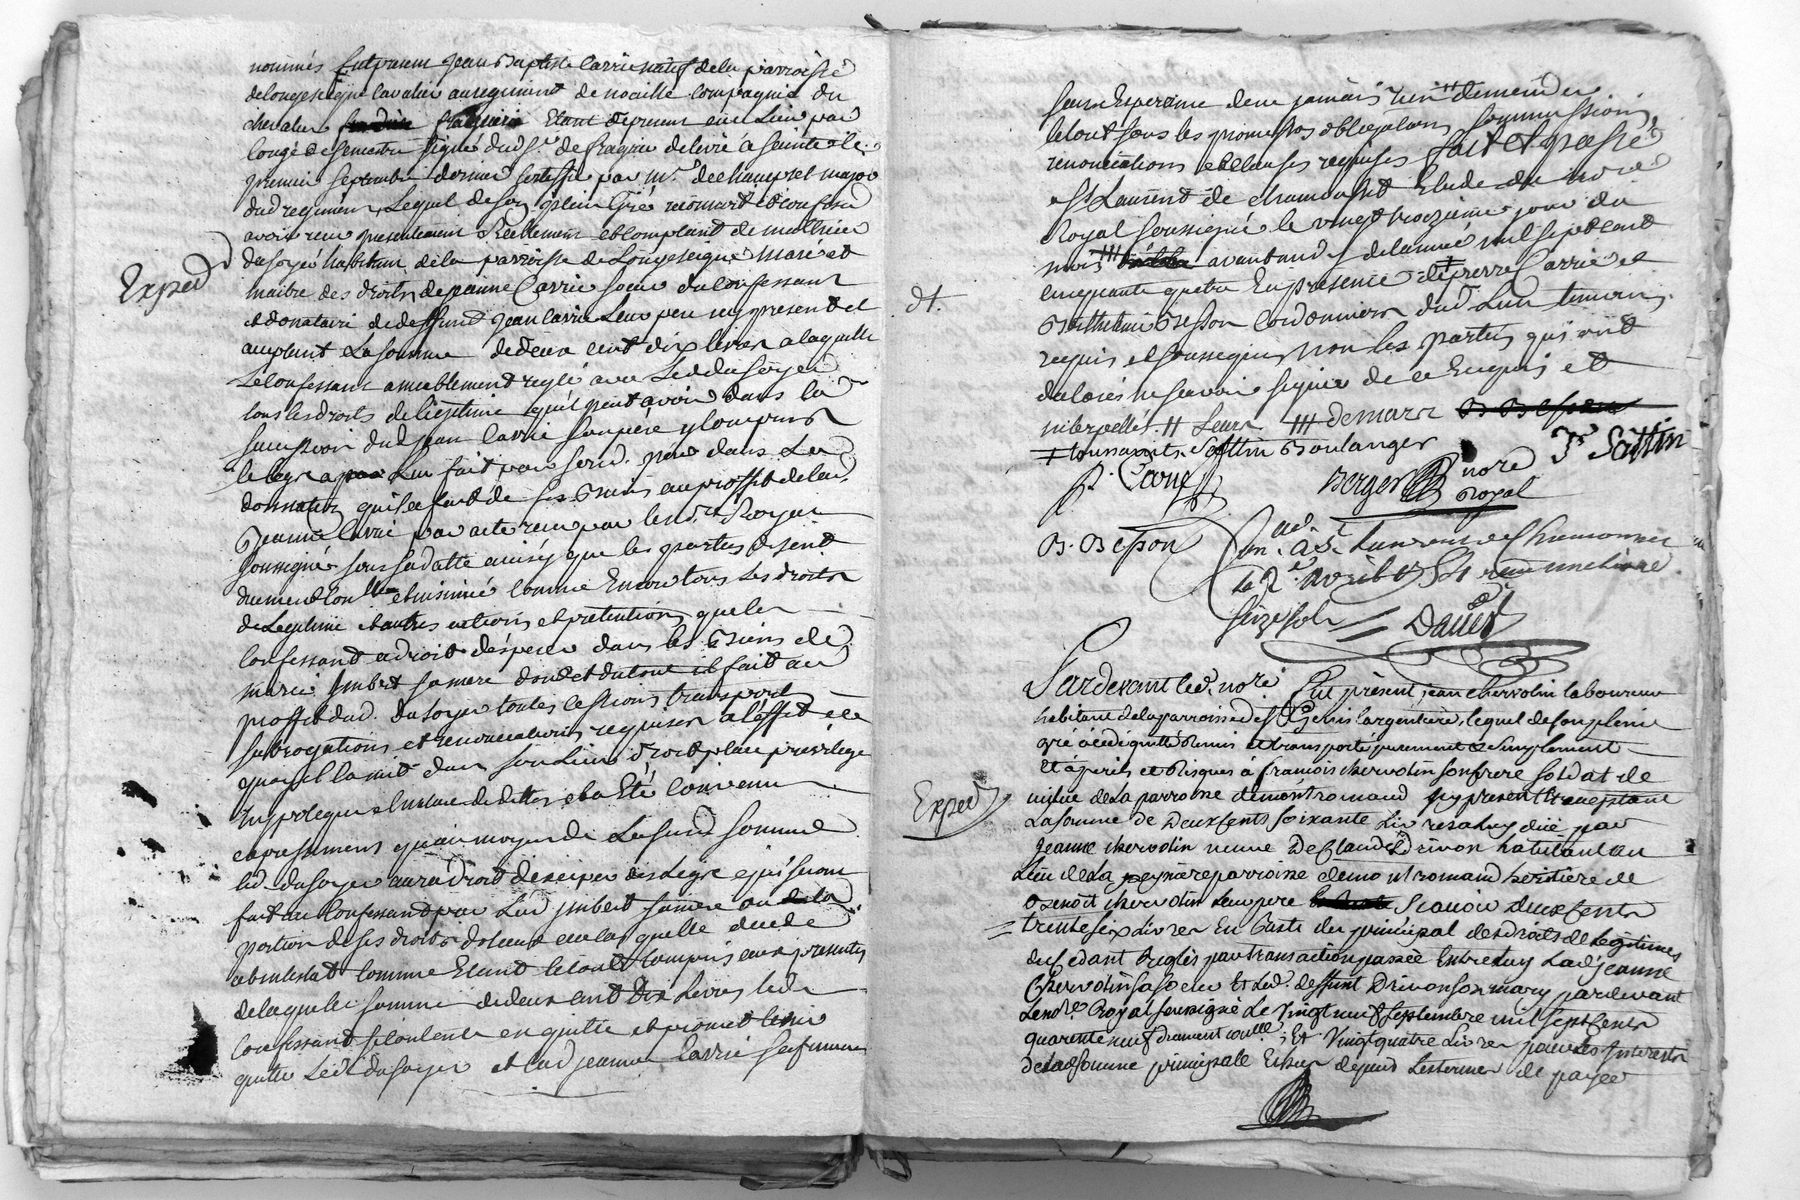 nommés fut present Jean Baptiste Carrie natif de la parroisse
de Longessaigne cavalier au regiment de noaille compagnie du
chevalier Etant de present en ce Lieu par
congé de semestre signé dud sr. de fragnie delivré à
premier septembre dernier par mr. dechampret major
dud regiment, Lequel de son plein Gré reconnait et confesse
avoir reçu presentement Réellement et comptant de mathieu
dusoyer habitant de la parroisse de Longessaigne mari et
Exped
maitre des droits de jeanne Carrie soeur du confessant
et donataire de deffunt jean Carrie Leur pere icy present et
acceptant La somme de deux cent dix livres a laquelle
Le confessant amiablement reglé avec Led dusoyer
tous les droits de legitime qu'il peut avoir dans la
succession dud jean Carrie son père y compris
le legs a Luy fait par sond. père dans La
donnation qu'il a fait de ses Biens au proffit de lad.
Jeanne Carrie par acte reçu par le nore. Royal
soussigné sous sa datte que les parties disent
duement Con.lle et insinué comme Encore tous Les droits
de Legitime et autres actions et pretentions que le
Confessant a droit d'espérer dans les Biens de
marie Imbert sa mere dont et du tout il fait au
proffit dud. dusoyer toutes cessions, transports
subrogations et renonciations requises a l'effet de ce
quoy il la mit dans son Lieu, droit, place, privilege
hypoteque et nature de dettes et a Eté convenu
expressement qu'au moyen de La susd somme
led. dusoyer aura droit de exiger du Legs qui seroit
fait au Confessant par Lad. Imbert sa mere ou de la
portion de ses droits dans laquelle decede
abintestat comme Etant le tout compris aux presentes
de laquelle somme de deux cent dix Livres led.
Confessant se contente en quitte et promet tenir
quitte Led. dusoyer et lad jeanne Carrie sa femme
sans Esperance de ne jamais rien †† demander
le tout sous les promesses obligations, soummissions,
renonciations et clauses requises fait et passé
a St Laurent de chamousset Etude du nore
Royal soussigné le vingt troizieme jour du
mois †††† avant midy de l'année mil sept cent
cinquante quatre En presence de pierre Carrie et
dt.
Barthelemi Besson Cordonniers dud. Lieu temoins
requis et soussignes non Les parties qui ont
declarés ne savoir signer de ce Enquis et
interpellés. †† Leurs †††† de mars
‡ toussaint Sattin Boulanger
p. Carrie
Berger nore Royal
Tt Sattin
B. Besson
Con.lé a St Laurent de Chamousset
le 2e. avril 1754 reçu une livre
seize sols
Daviet
Pardevant led. nore. Fut présent, jean chervolin laboureur
habitant de la parroisse de St Genis largentiere, lequel de son plein
gré a cedé quitté Remis et transporté purement et Simplement
Et à perils et Risques à françois chervolin son frere soldat de
milice de la parroisse de montromand icy present Et acceptant
Exped
La somme de Deux Cents soixante Livres a luy due par
Jeanne chervolin veuve De Claude Drivon habitant au
Lieu de La parroisse de montromand heritiere de
Benoit chervolin Leur pere Scavoir deux Cents
trente six livres En Reste du principal des droits de legitimes
du Cedant Reglés par transaction passée Entre luy Lad. jeanne
Chervolin sa soeur Et Led. deffunt Drivon son mary pardevant
Le nore. Royal soussigné Le vingt neuf septembre mil sept Cents
quarente neuf duement conllé.; Et vingt quatre Livres pour les Interets
de lad. somme principalle Echus depuis Les termes de payer